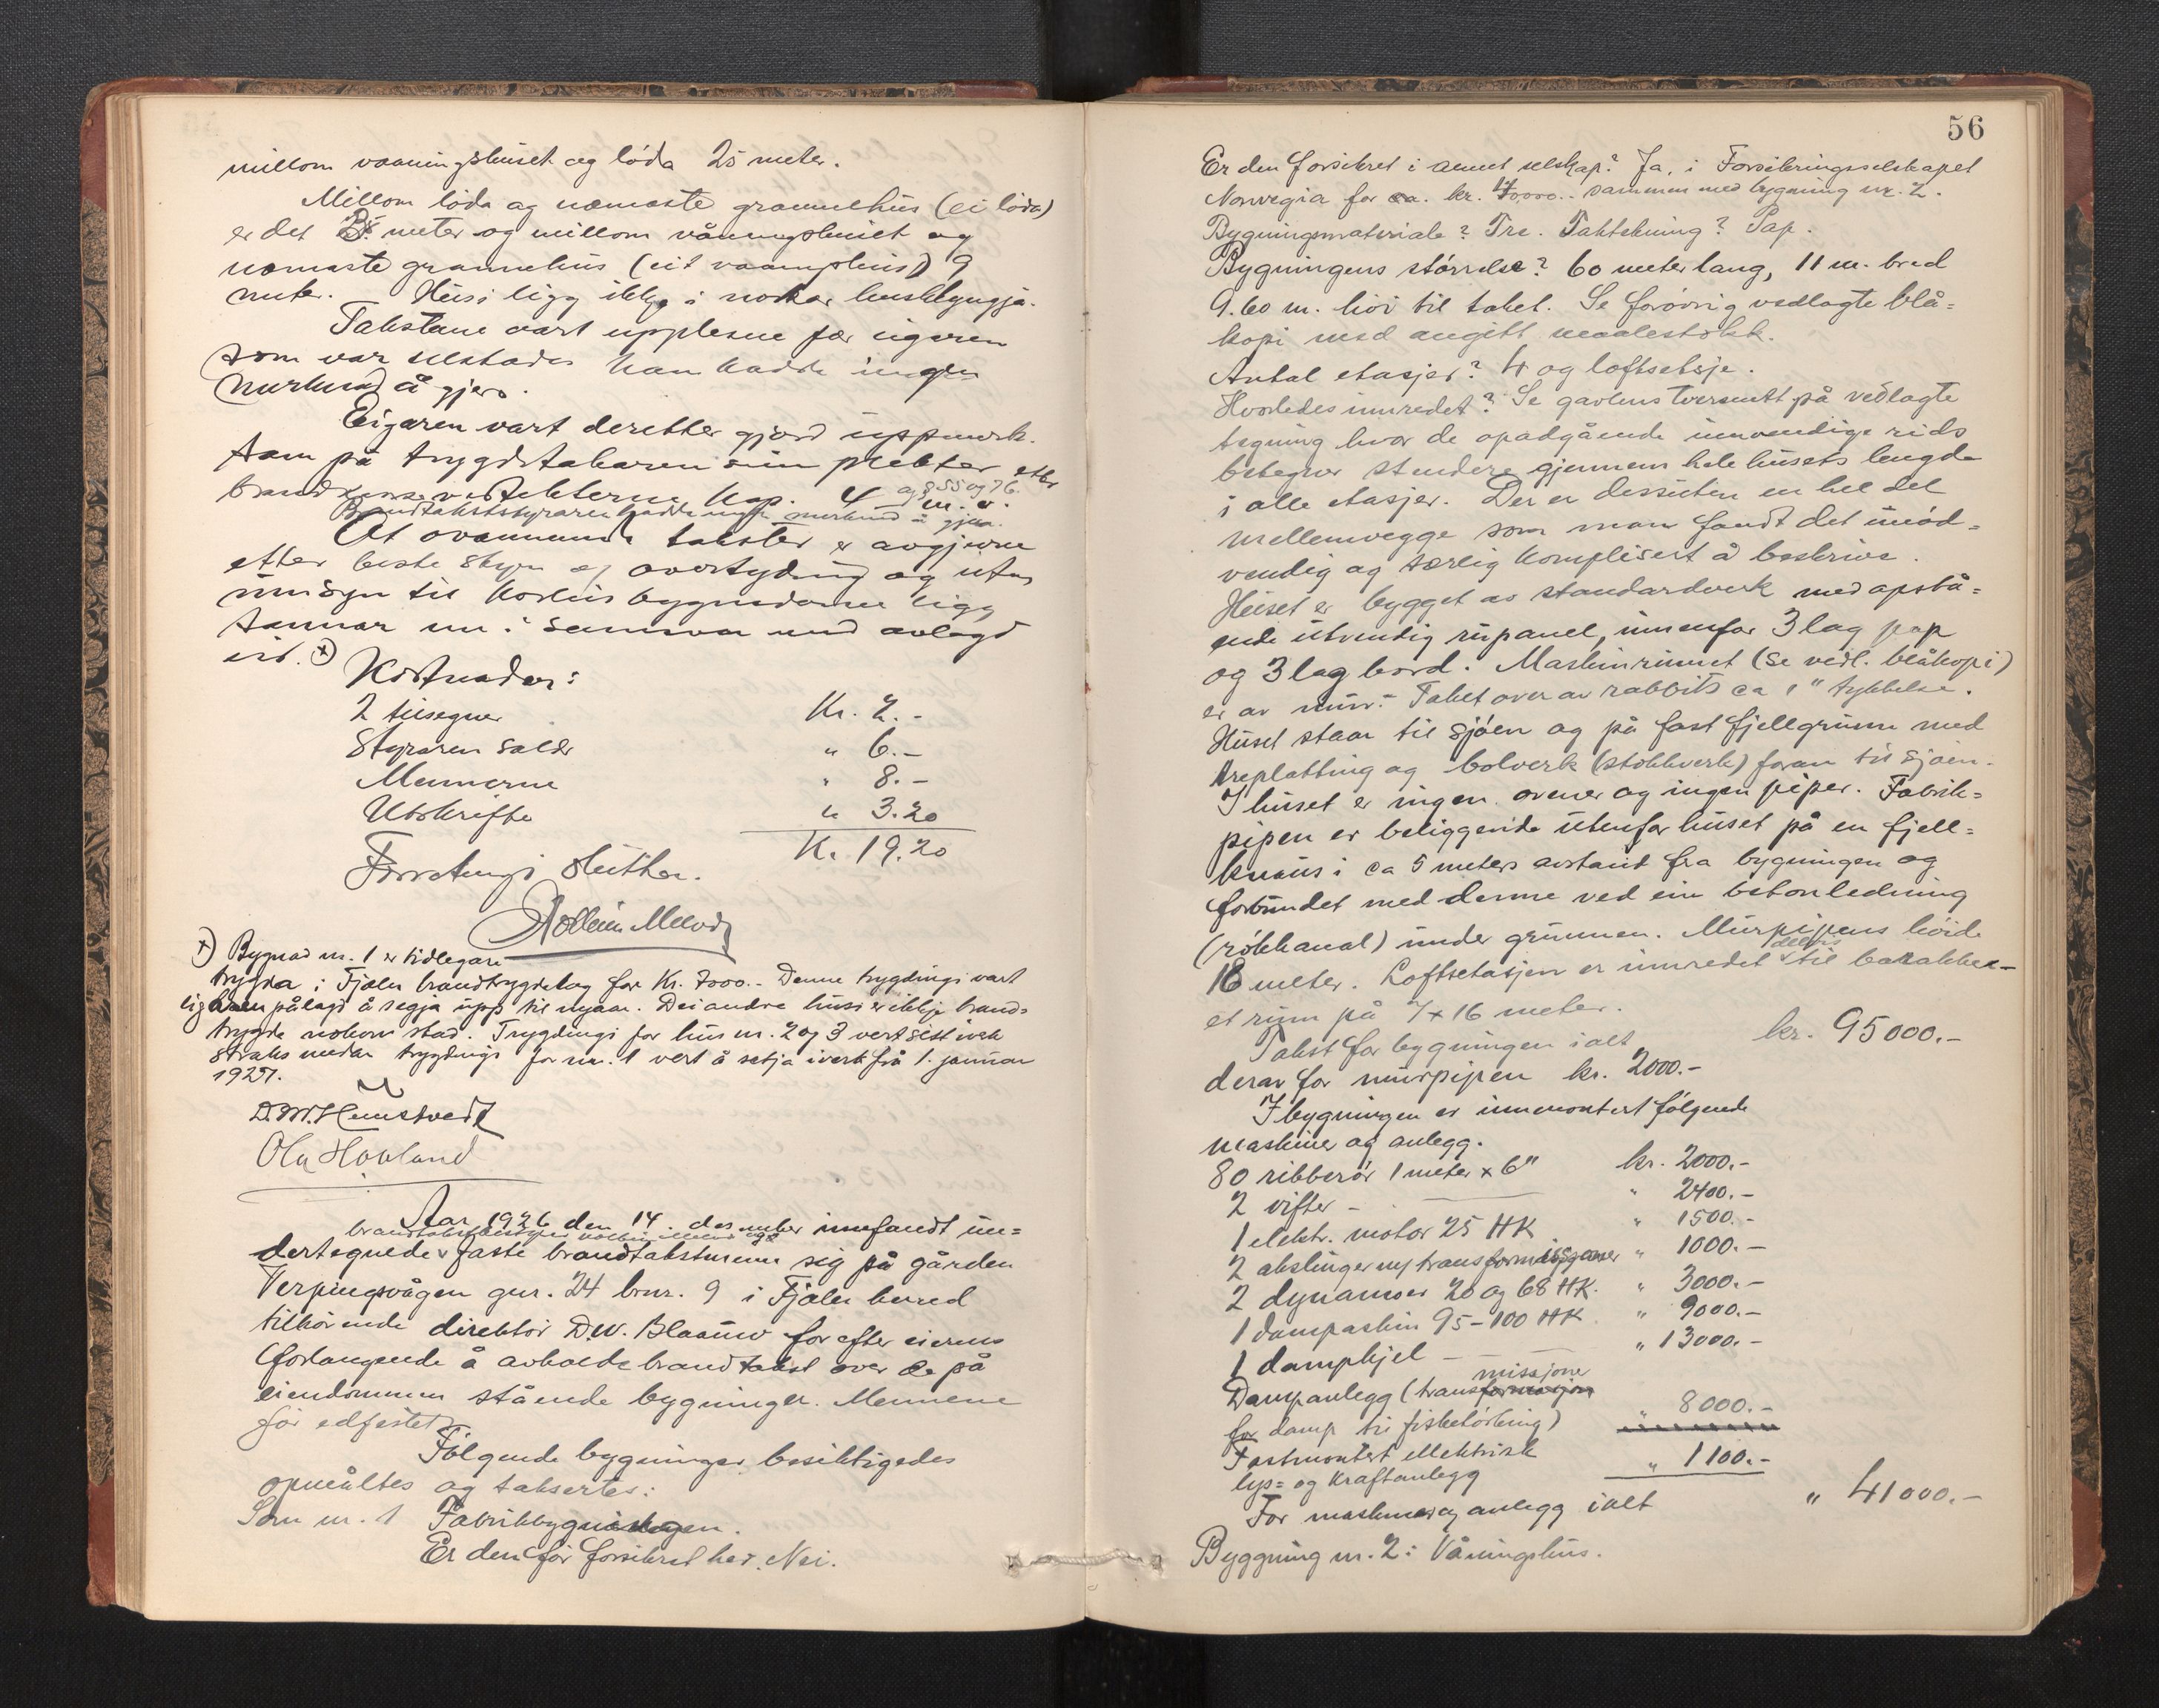 millom vaaningshuset og löda 25 meter.
Millom löda og næmaste grannehus (ei löda)
er det meter og millom våningshuset og
næmaste grannehus (eit vaaningshus) 9
meter. Husi ligg ikkje i nokor husklyngja.
Takstane vart upplesne for eigaren
som var tilstades han hadde ingen
merknad å gjera.
Eigaren vart deretter gjord uppmerk-
sam på trygdtakaren sin plikter etter
brandkassevedtekterne kap. 4 og § 55 og 76 m. v.
Brandtakststyraren hadde ingen merknad å gjera.
At ovannemnde takster er avgjevne
etter beste skyn og overtyding og utan
umsyn til korleis bygnadarne ligg
saman um i samsvar med avlagd
eid. +)
Kostnader:
2 tilsegner Kr. 2.-
Styraren Salær " 6.-
Mennerne " 8.-
Utskrifte " 3.20
Kr. 19.20
Forretningi slutta.
+) Bygnad nr. 1 er tidlegare
trygda i Fjaler brandtrygdelag for Kr. 7000.- Denne trygdingi vart
eigaren pålagd å segja upp til nyaar. Dei andre husi er ikkje brand-
trygda nokon stad. Trygdingi for hus nr. 2 og 3 vert sett iverk
straks medan trygdingi for nr. 1 vert å setja iverk frå 1. januar
1927.
Ola Hovland
Aar 1926 den 14. desember innfandt un-
dertegnede faste brandtakstmenn sig på gården
Verpingsvågen gnr. 24 bnr. 9 i Fjaler herred
tilhörende direktör D.W. Blaauw for efter eierens
forlangende å avholde brandtakst over de på
eiendommen stående bygninger. Mennene
før edfestet.
Følgende bygninger besiktigedes
opmåltes og taksertes:
Som nr. 1 Fabrikkbygningen.
Er den før forsikret her. Nei.
56
Er den forsikret i annet selskap? Ja, i Forsikringsselskapet
Norvegia for ca. kr. sammen med bygning nr. 2.
Bygningsmateriale? Tre. Taktekning? Pap.
Bygningens störrelse? 60 meter lang, 11 m. bred
9.60 m. höi til taket. Se forövrig vedlagte blå-
kopi med angitt maalestokk.
Antal etasjer? 4 og loftsetasje.
Hvorledes innredet? Se gavlens tversnitt på vedlagte
tegning hvor de opadgående innvendige rids
betegner stendere gjennem hele husets lengde
i alle etasjer. Der er dessuten en hel del
mellemvegge som man fandt det unöd-
vendig og særlig komplisert å beskrive.
Huset er bygget av standardverk med opstå-
ende utvendig rupanel, innenfor 3 lag pap
og 3 lag bord. Maskinrummet (se vedl. blåkopi)
er av mur. Taket over av rabbits ca 1" tykkelse.
Huset staar til sjöen og på fast fjellgrunn med
treplatting og bolverk (stokkverk) foran til sjöen.
I huset er ingen ovner og ingen piper. Fabrik-
pipen er beliggende utenfor huset på en fjell-
knaus i ca 5 meters avstand fra bygningen og
forbundet med denne ved ein betonledning
(rökkanal) under grunnen. Murpipens höide
16 meter. Loftsetasjen er innredet delvis til barakker-
et rum på 7 x 16 meter.
Takst for bygningen ialt kr. 95000.-
derav for murpipen kr. 2000.-
I bygningen er innmontert følgende
maskiner og anlegg.
80 ribberör 1 meter x 6" kr. 2000.-
2 vifter - " 2400.-
1 elektr. motor 25 HK " 1500.-
2 akslinger m/ transmisjoner " 1000.-
2 dynamoer 20 og 68 HK. " 3000.-
1 dampaskin 95-100 HK " 9000.-
1 dampkjel - " 13000.-
Dampanlegg (transmissjoner
for damp til fisketörking) " 8000.-
Fastmontert ellektrisk
lys- og kraftanlegg " 1100.-
For maskiner og anlegg ialt " 41000.-
Byggning nr. 2: Våningshus.